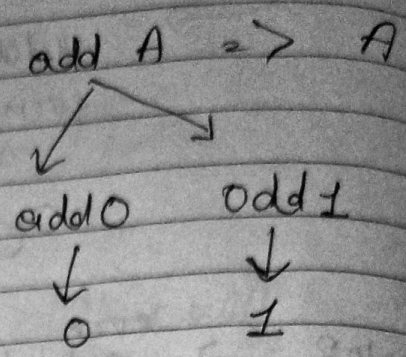 add A => A
add 0 odd 1
0 1